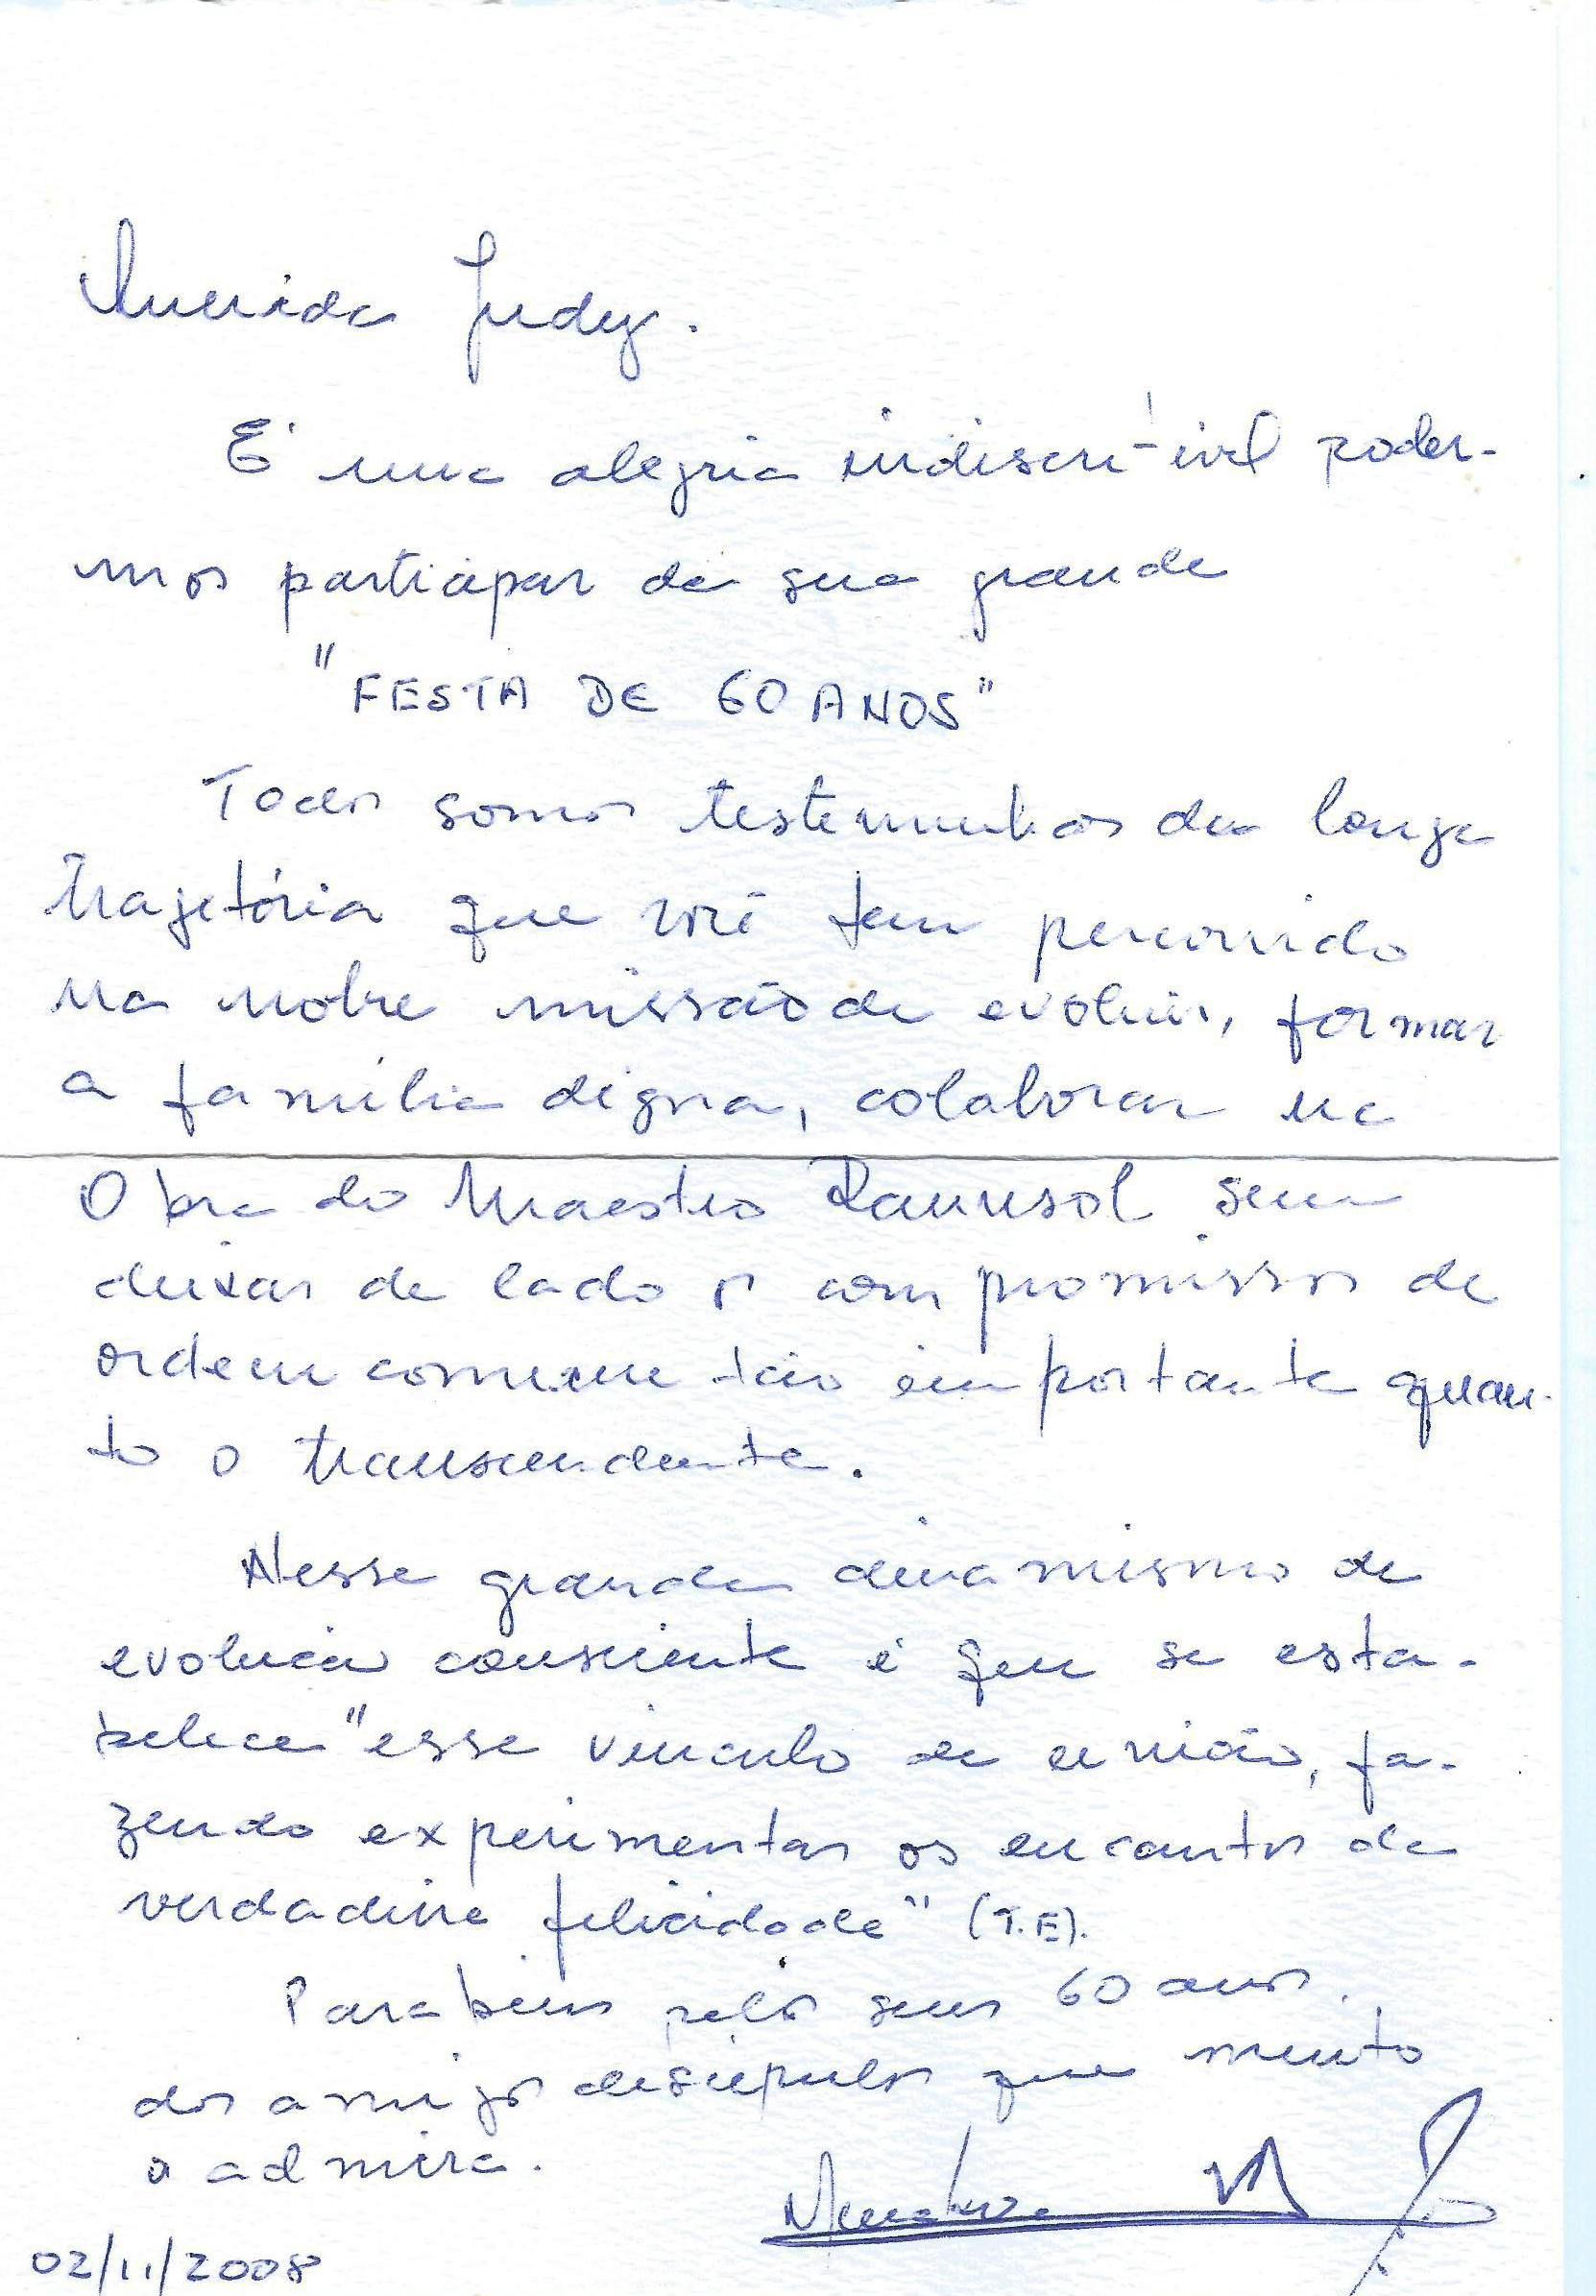 Querida Judy.
É uma alegria indiscritível poder-
mos participar da sua grande
"FESTA DE 60 ANOS"
Todos somos testemunhas da longa
trajetória que você tem percorrido
na nobre missão de evoluir, formar
a família digna, colaborar na
Obra do Maestro Raumsol sem
deixar de lado os compromissos de
ordem comum tão importante quan-
to o transcendente.
Nesse grande dinamismo de
evolução consciente é que se esta-
belece "esse vinculo de união, fa-
zendo experimentar os encantos da
verdadeira felicidade" (T.E).
Parabens pelos seus 60 anos.
dos amigos discípulos que muito
a admira.
02/11/2008